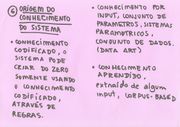 6 ORIGEM DO
CONHECIMENTO
DO SISTEMA
• CONHECIMENTO
CODIFICADO, O
SISTEMA PODE
CRIAR DO ZERO
SOMENTE USANDO
O CONHECIMENTO
CODIFICADO,
ATRAVÉS DE
REGRAS.
• CONHECIMENTO POR
INPUT, CONJUNTO DE
PARÂMETROS, SISTEMAS
PARAMÉTRICOS,
CONJUNTO DE DADOS.
(DATA ART)
• CONHECIMENTO
APRENDIDO,
extraído de algum
INPUT, CORPUS-BASED